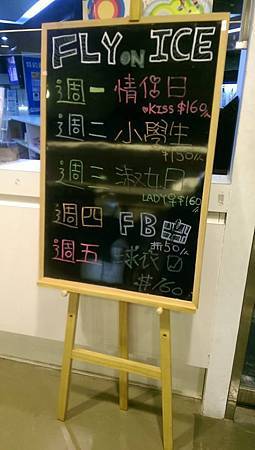 FLY ON ICE
週一 情侶日
♥KISS $160/人
週二 小學生
$150/人
週三 淑女日
LADY $160/人
週四 FB
週五 球衣日
$160